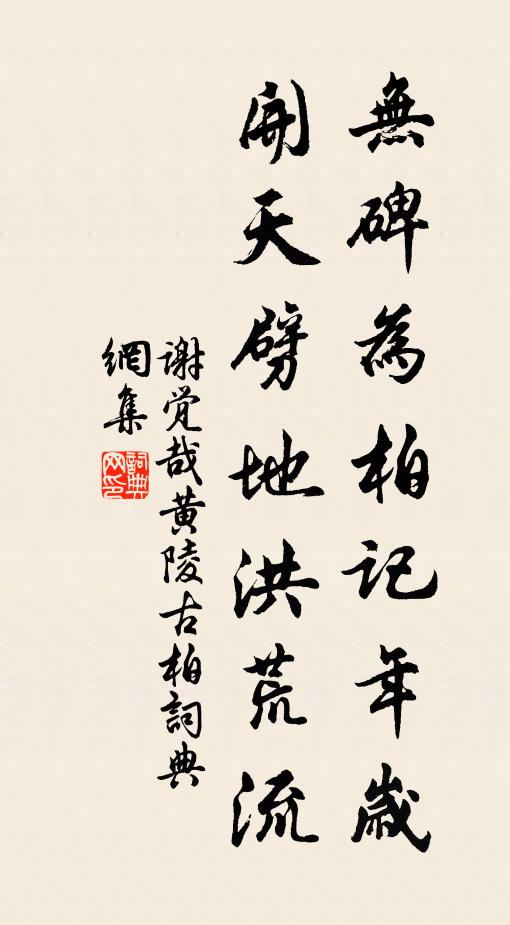 無碑為柏記年歲
開天劈地洪荒流
谢觉哉黄陵古柏詞典
網集
詞典
网印